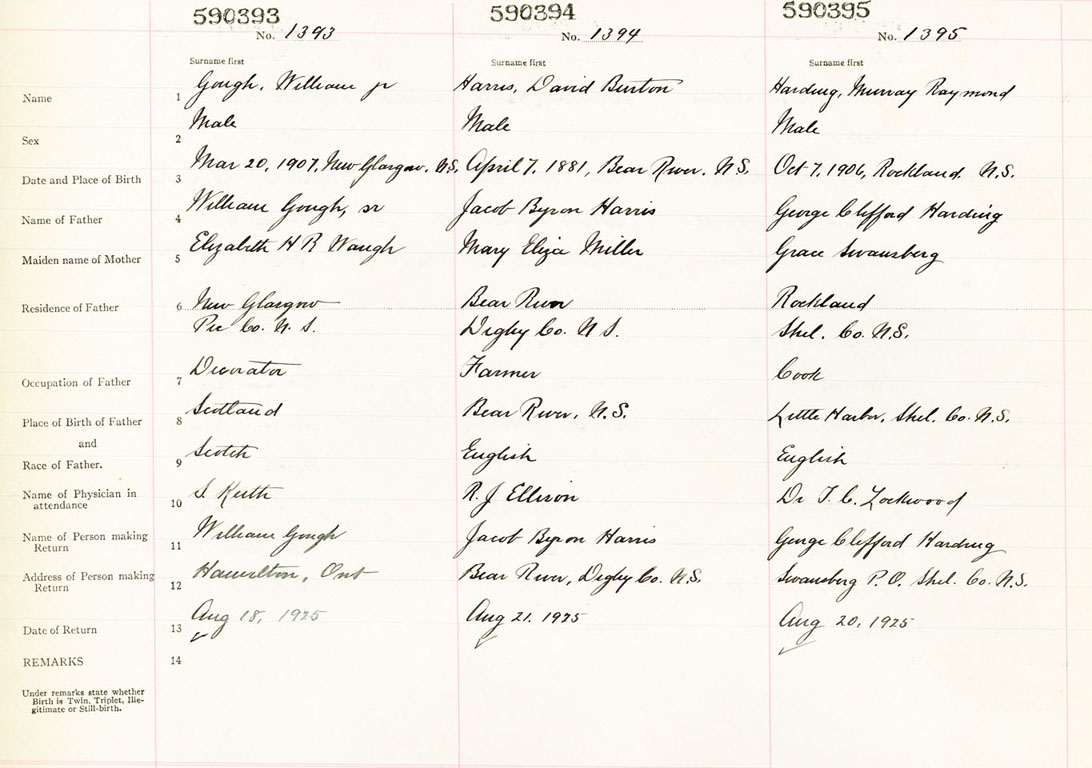 590393 590394 590395
No. 1393 No. 1394 No. 1395
Surname first Surname first Surname first
Name 1 Gough, William jr Harris, David Burton Harding, Murray Raymond
Sex 2 Male Male Male
Date and Place of Birth 3 Mar 20, 1907, New Glasgow. N.S. April 7. 1881, Bear River. N.S. Oct 7, 1906, Rockland. N.S.
Name of Father 4 William Gough, sr Jacob Byron Harris George Clifford Harding
Maiden name of Mother 5 Elizabeth H R Waugh Mary Eliza Miller Grace Swansberg
Residence of Father 6 New Glasgow Bear River Rockland
Pic Co. N. S. Digby Co. N S. Shel. Co. N.S.
Occupation of Father 7 Decorator Farmer Cook
Place of Birth of Father 8 Scotland Bear River, N.S. Little Harbor, Shel. Co. N.S.
and
Race of Father. 9 Scotch English English
Name of Physician in
attendance 10 S Keith R. J Ellison Dr T. C. Lockwood
Name of Person making
Return 11 William Gough Jacob Byron Harris George Clifford Harding
Address of Person making
Return 12 Hamilton, Ont Bear River, Digby Co. N.S. Swansberg P. O. Shel. Co. N.S.
Date of Return 13 Aug 18, 1925 Aug 21. 1925 Aug 20, 1925
REMARKS 14
Under remarks state whether
Birth is Twin, Triplet, Ille-
gitimate or Still-birth.